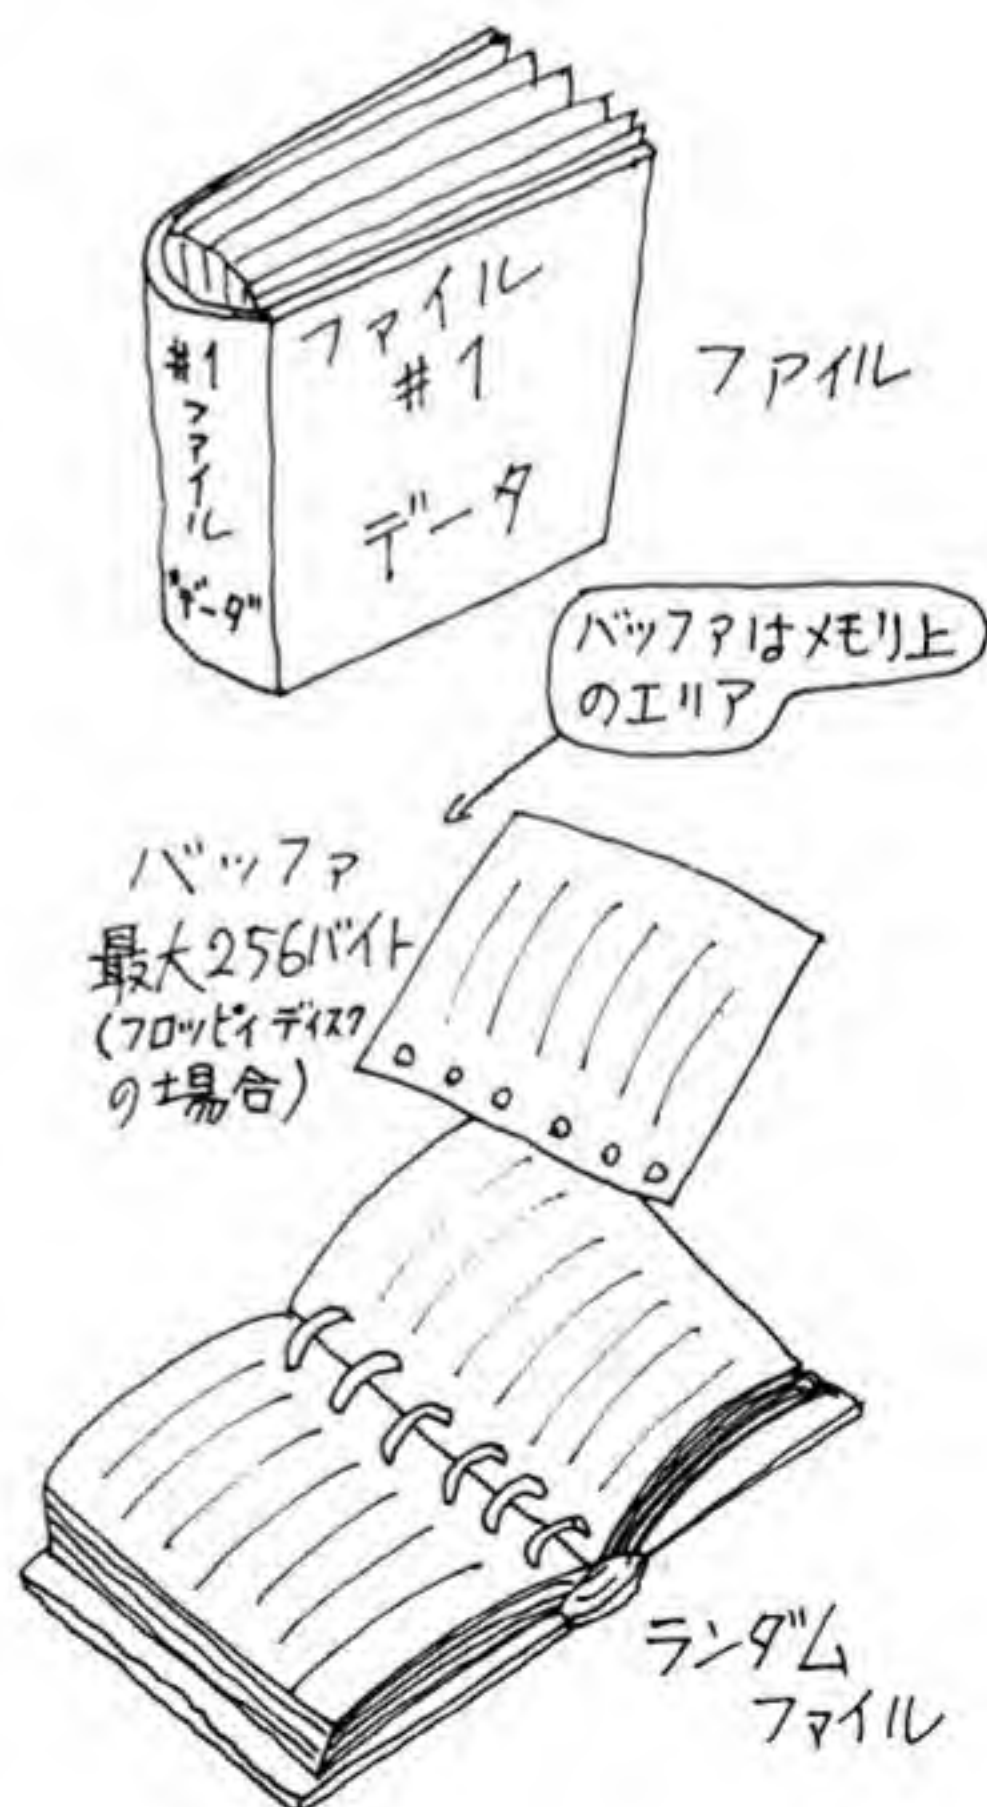 ファイル
#1
データ
#1
ファイル
"データ"
ファイル
バッファはメモリ上
のエリア
バッファ
最大256バイト
(フロッピィディスク
の場合)
ランダム
ファイル